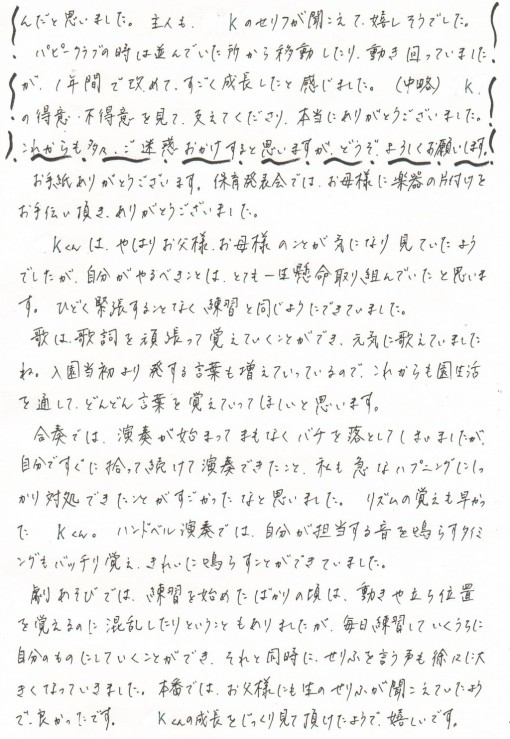 んだと思いました。 主人も、 Kのせりフが聞こえて、嬉しそうでした。
パピークラブの時は並んでいた所から移動したり、動き回っていました
が、1年間で改めて、すごく成長したと感じました。 (中略) K、
の得意・不得意を見て、支えてくださり、本当にありがとうございました。
これからも多々、ご迷惑おかけすると思いますが、どうぞよろしくお願いします。
お手紙ありがとうございます。保育発表会では、お母様に楽器の片付けを
お手伝い頂き、ありがとうございました。
Kくんは、やはりお父様、お母様のことが気になり見ていたよう
でしたが、自分がやるべきことは、とても一生懸命取り組んでいたと思いま
す。ひどく緊張することなく練習と同じようにできていました。
歌は、歌詞を頑張って覚えていくことができ、元気に歌えていました
ね。入園当初より発する言葉も増えていっているので、これからも園生活
を通して、どんどん言葉を覚えていってほしいと思います。
合奏では、演奏が始まってまもなくバチを落としてしまいましたが、
自分ですぐに拾って続けて演奏できたこと、私も急なハプニングにしっ
かり対処できたことがすごかったなと思いました。 リズムの覚えも早かっ
た Kくん。 ハンドベル演奏では、自分が担当する音を鳴らすタイミ
ングもバッチリ覚え、きれいに鳴らすことができていました。
劇あそびでは、練習を始めたばかりの頃は、動きや立ち位置
を覚えるのに混乱したりということもありましたが、毎日練習していくうちに
自分のものにしていくことができ、それと同時に、せりふを言う声も徐々に大
きくなっていきました。本番では、お父様にも生のせりふが聞こえていたよう
で、良かったです。 Kくんの成長をじっくり見て頂けたようで、嬉しいです。